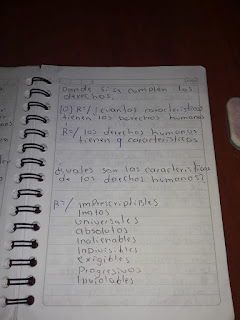 Donde si se cumplen los
derechos.
10) R=/ ¿cuantas caracteristicas
tienen los derechos humanos
R=/ los derechos humanos
tienen 9 caracteristicas
¿cuales son las caracteristica
de los derechos humanos?
R=/ imprescriptibles
Inatos
universales
absolutos
Inalienables
Indivisibles
exigibles
Progresivos
Inviolables